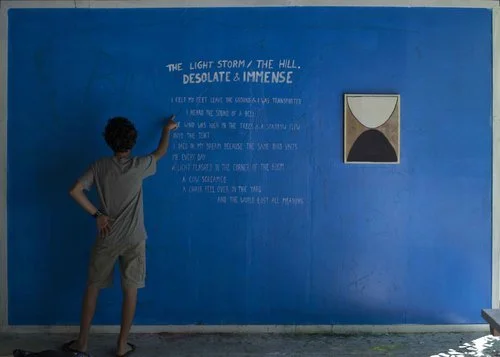 THE LIGHT STORM / THE HILL.
DESOLATE & IMMENSE
I FELT MY FEET LEAVE THE GROUND & I WAS TRANSPORTED
I HEARD THE SOUND OF A BELL
THE WIND WAS HIGH IN THE TREES & A SPARROW FLEW
INTO THE TENT
I DIED IN MY DREAM BECAUSE THE SAME BIRD VISITS
ME EVERY DAY
A LIGHT FLASHES IN THE CORNER OF THE ROOM
A COW SCREAMED
A CHAIR FELL OVER IN THE YARD
AND THE WORLD LOST ALL MEANING